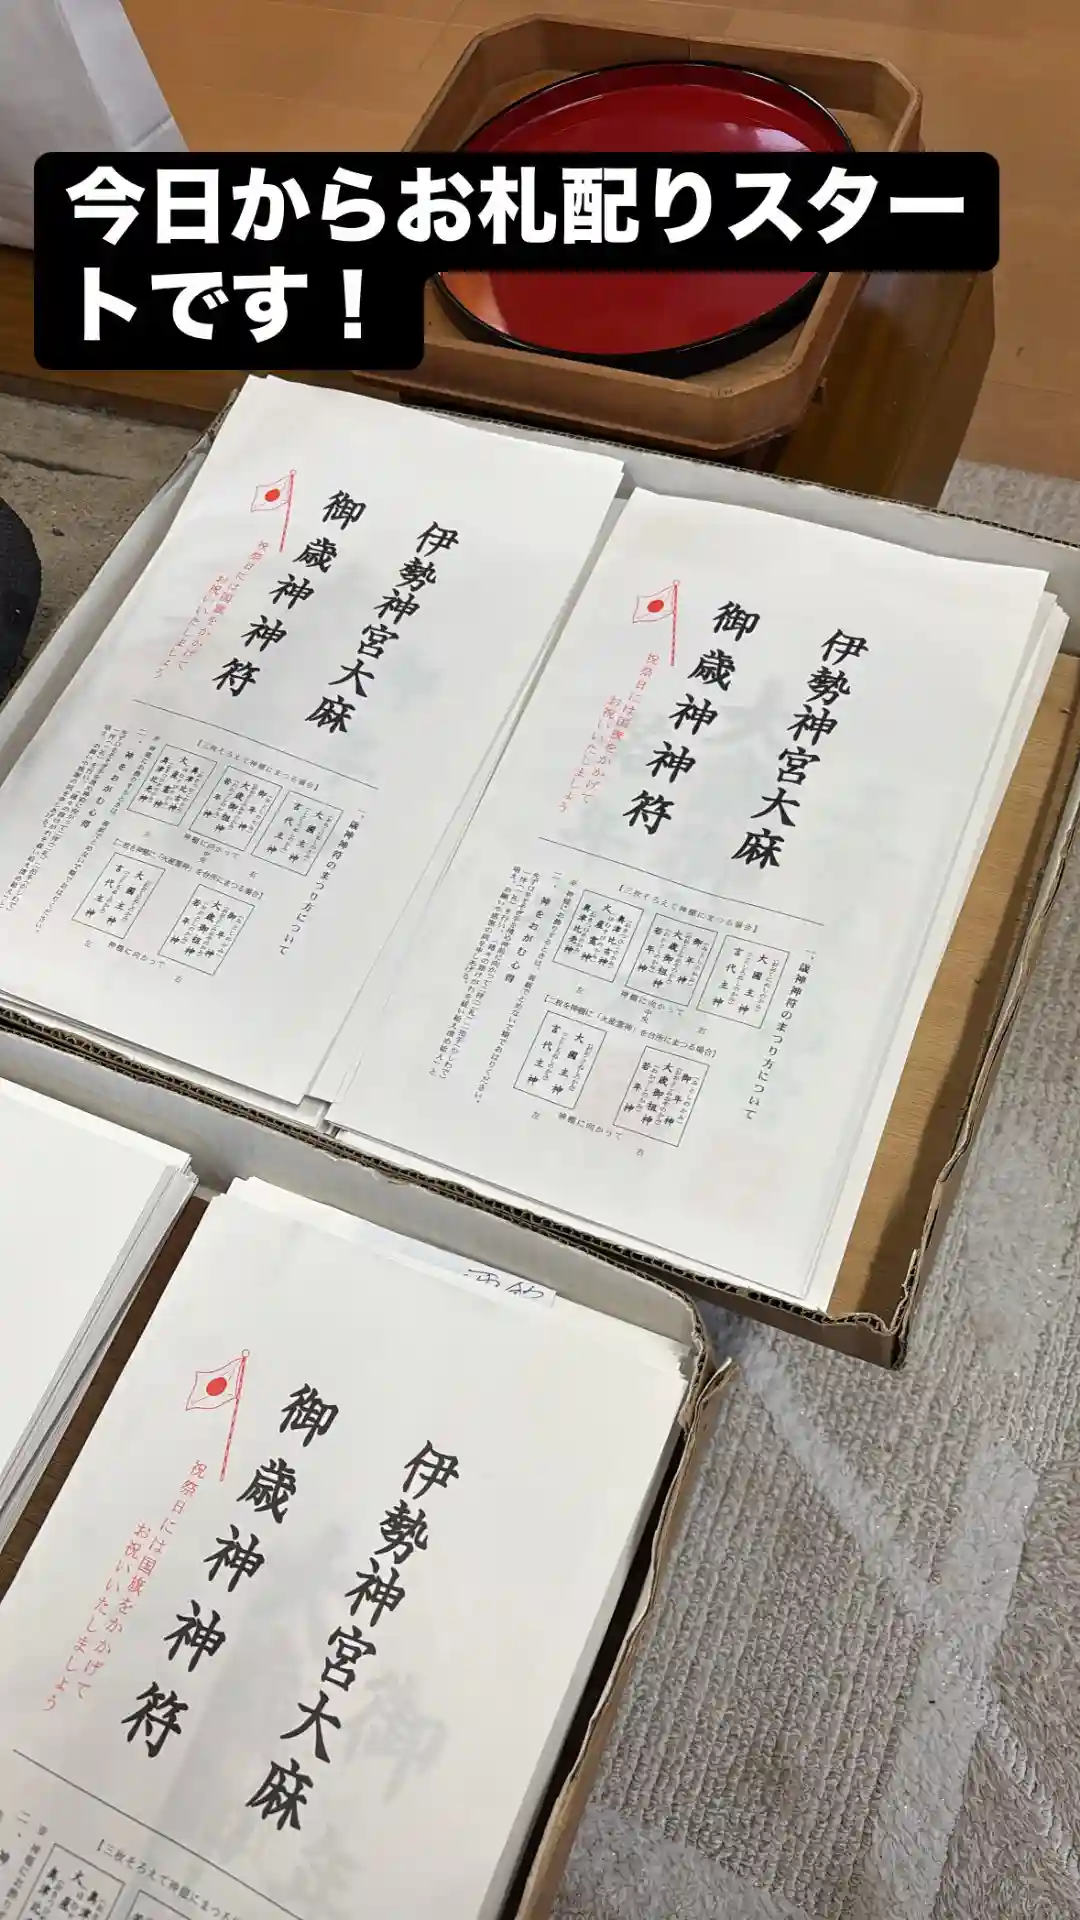 今日からお札配りスター
トです！
伊勢神宮大麻
御歳神神符
祝祭日には国旗をかかげて
お祝いいたしましょう
一、歳神神符のまつり方について
【三枚そろえて神棚にまつる場合】
大國主神
言代主神
御年神
大歳御祖神
若年神
奥津比古神
大産霊神
奥津比売神
右
中央
左
神棚に向かって
【二枚を神棚に「火産霊神」を台所にまつる場合】
御年神
大歳御祖神
若年神
大國主神
言代主神
右
神棚に向かって
左
二、神をおがむ心得
伊勢神宮大麻
御歳神神符
祝祭日には国旗をかかげて
お祝いいたしましょう
一、歳神神符のまつり方について
【三枚そろえて神棚にまつる場合】
大國主神
言代主神
御年神
大歳御祖神
若年神
奥津比古神
大産霊神
奥津比売神
右
中央
左
神棚に向かって
【二枚を神棚に「火産霊神」を台所にまつる場合】
御年神
大歳御祖神
若年神
大國主神
言代主神
右
神棚に向かって
左
二、神をおがむ心得
伊勢神宮大麻
御歳神神符
祝祭日には国旗をかかげて
お祝いいたしましょう
【三枚そろえて神棚にまつる場合】